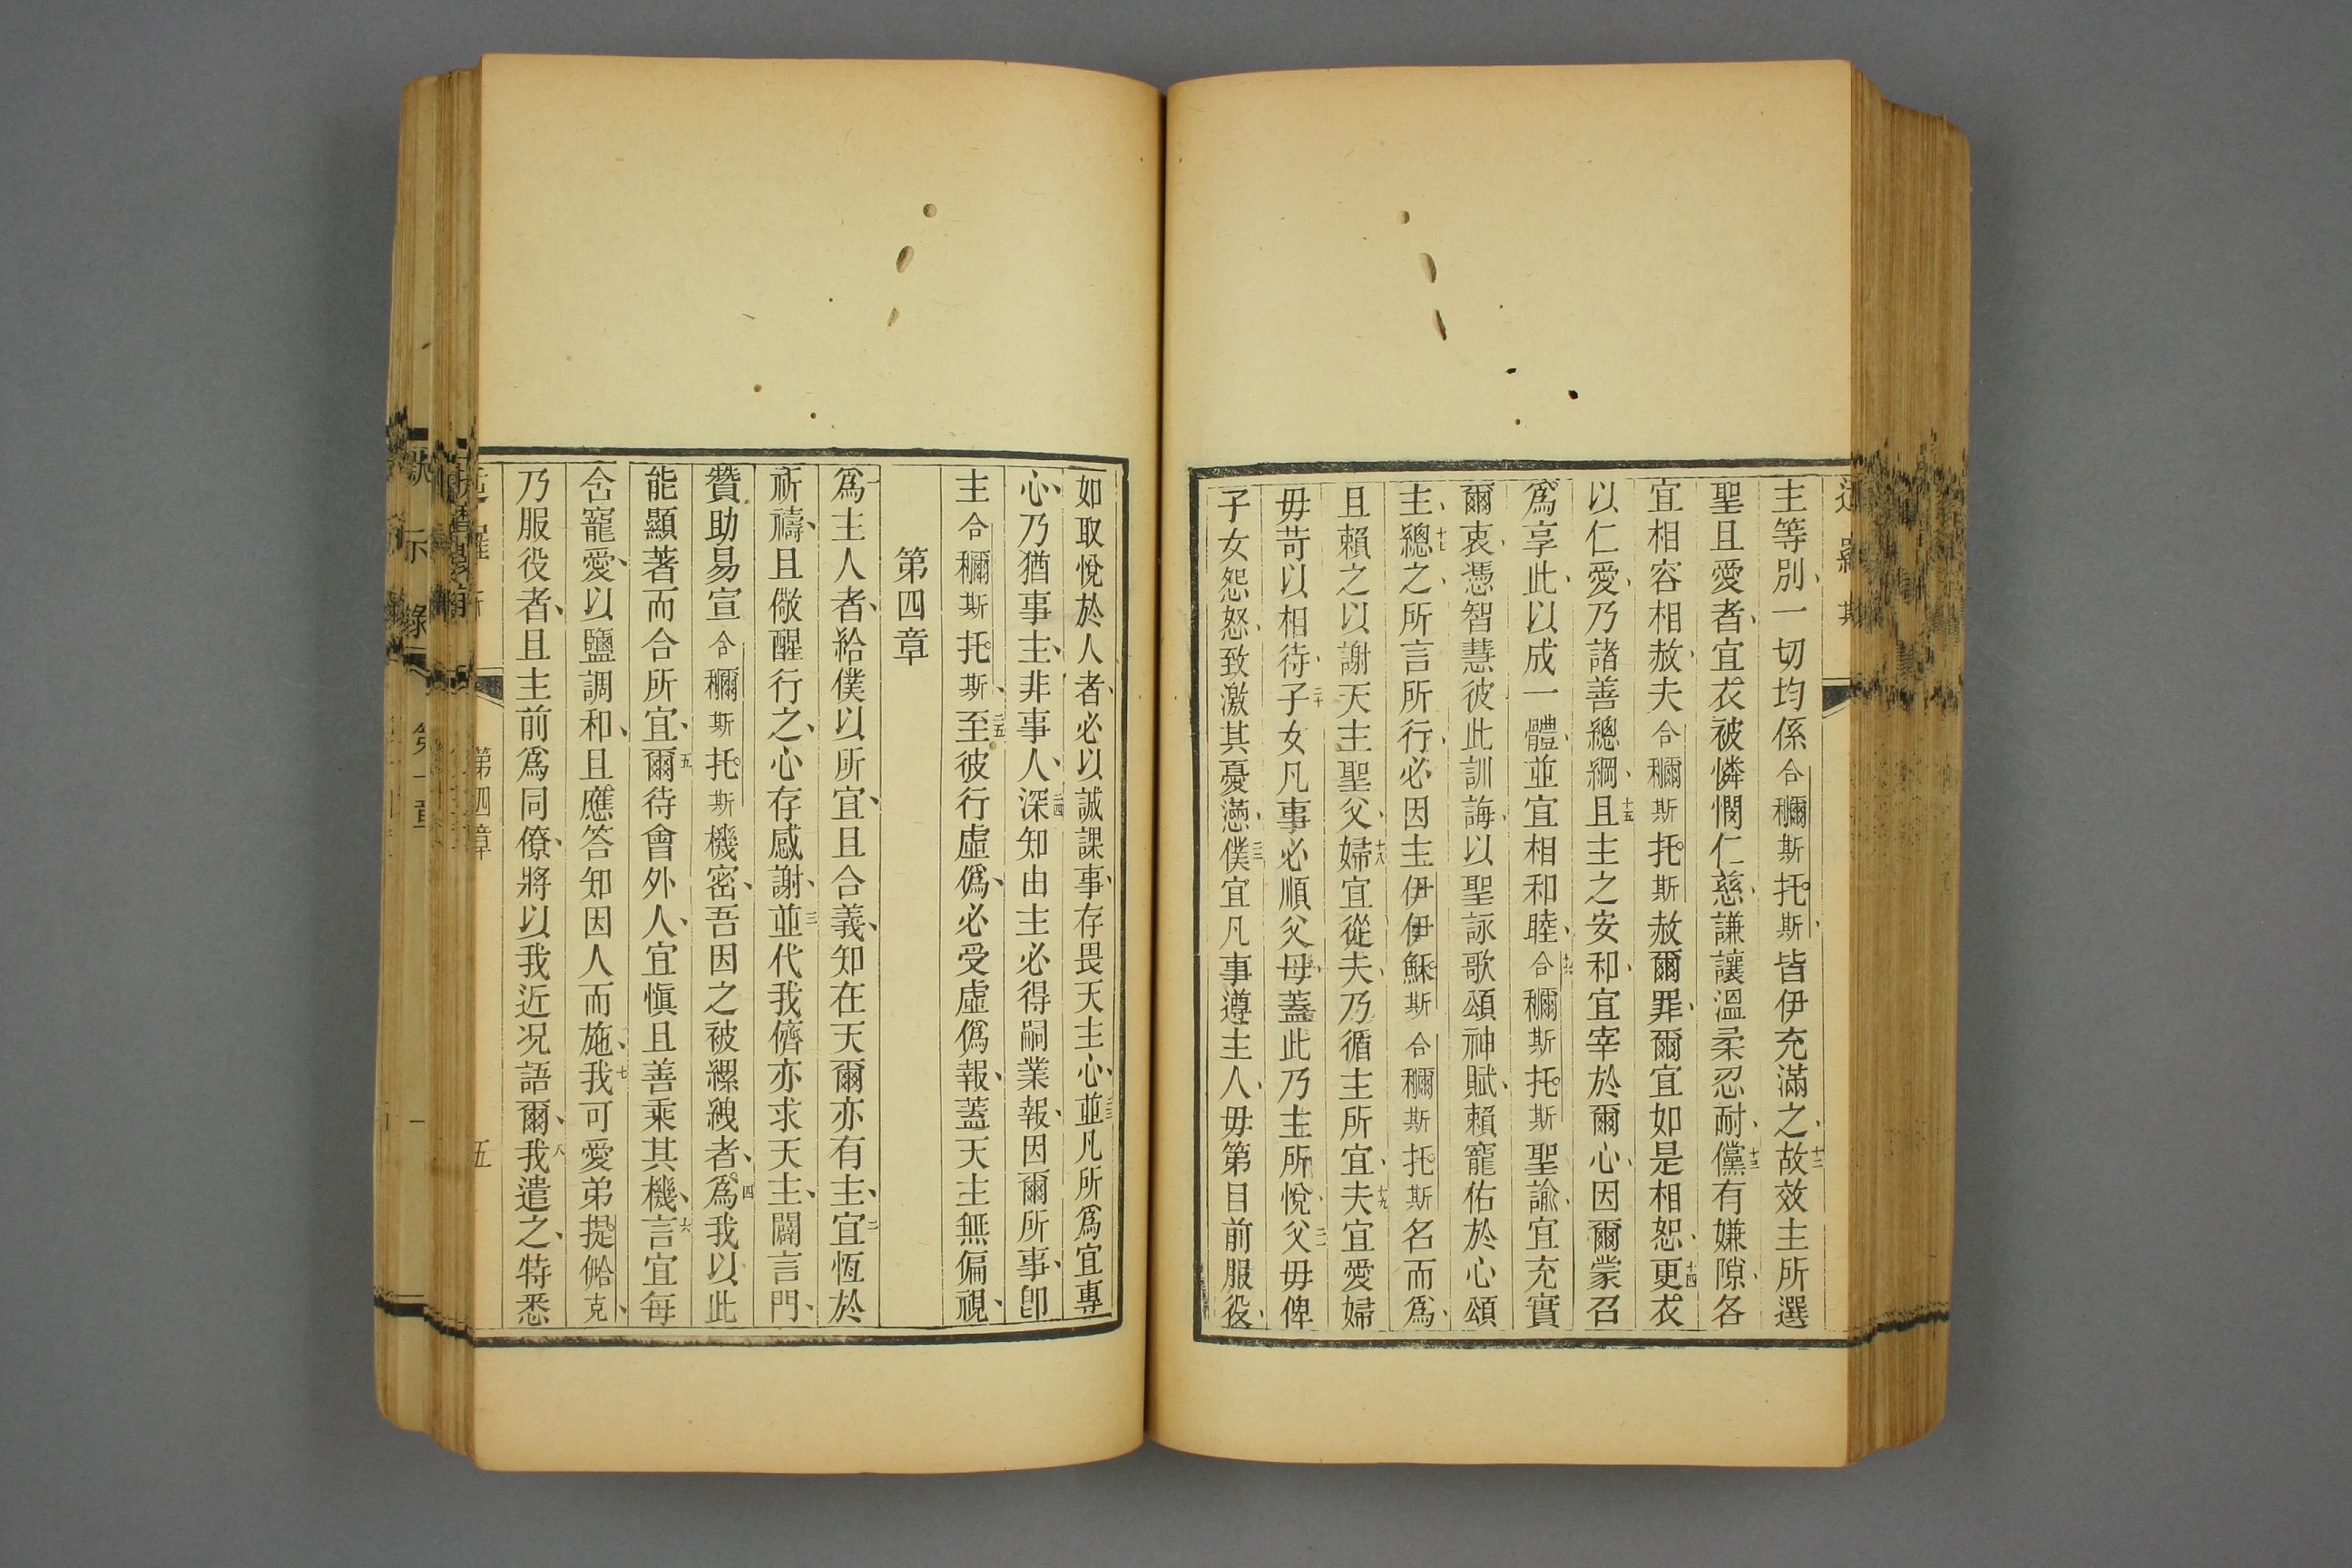 主等別、一切均係合穪斯托斯、皆伊充滿之、十二故效主所選
聖且愛者、宜衣被憐憫仁慈、謙讓溫柔忍耐、十三儻有嫌隙、各
宜相容相赦、夫合穪斯托斯赦爾罪、爾宜如是相恕、十四更衣
以仁愛、乃諸善總綱、十五且主之安和、宜宰於爾心、因爾蒙召
爲享此、以成一體、並宜相和睦、十六合穪斯托斯聖諭、宜充實
爾衷、憑智慧彼此訓誨、以聖詠歌頌神賦、賴寵佑於心頌
主、十七總之、所言所行、必因主伊伊穌斯合穪斯托斯名而爲、
且賴之以謝天主聖父、十八婦宜從夫、乃循主所宜、十九夫宜愛婦
毋苛以相待、二十子女凡事必順父母、蓋此乃主所悅、二一父毋俾
子女怨怒、致激其憂懣、二二僕宜凡事遵主人、毋第目前服役、
如取悅於人者、必以誠課事、存畏天主心、二三並凡所爲宜專
心、乃猶事主、非事人、二四深知由主必得嗣業報、因爾所事、卽
主合穪斯托斯、二五至彼行虛僞、必受虛僞報、蓋天主無偏視、
第四章
一爲主人者、給僕以所宜、且合義、知在天爾亦有主、二宜恆於
祈禱、且儆醒行之、心存感謝、三並代我儕亦求天主、闢言門、
贊助易宣合穪斯托斯機密、吾因之被縲絏者、四爲我以此
能顯著而合所宜、五爾待會外人、宜愼且善乘其機、六言宜每
含寵愛、以鹽調和、且應答知因人而施、七我可愛弟提伲克、
乃服役者、且主前爲同僚、將以我近况語爾、八我遣之、特悉
第四章
五